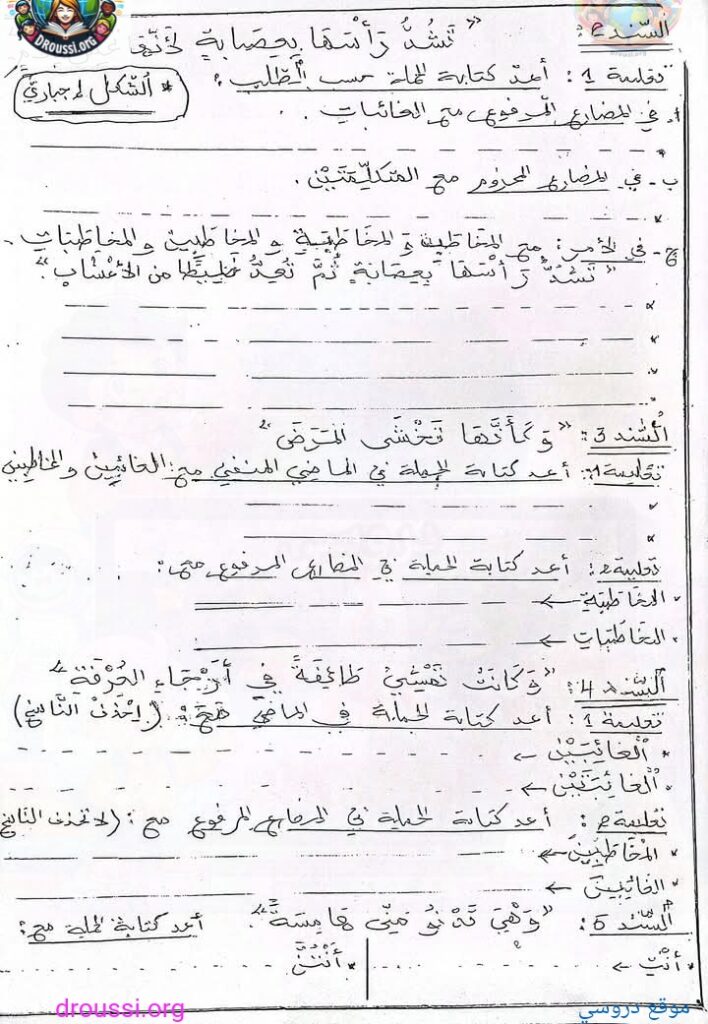 DROUSSI.ORG
السّند 2: "تَشُدُّ رَأْسَهَا بِعِصَابَةٍ لِأَنَّهَا
تعليمة 1: أعد كتابة الجملة حسب الطلب:
* الشّكل إجباري
أ- في المضارع المرفوع مع الغائبات.
ب- في المضارع المجزوم مع المتكلّمَتَيْن.
ج- في الأمر: مع المخاطب والمخاطبة والمخاطبين والمخاطبات.
"تَشُدُّ رَأْسَهَا بِعِصَابَةٍ ثُمَّ تُعِدُّ خَلِيطًا من الأعْشَاب"
السّند 3: "وَكَأَنَّهَا تَخْشَى المَرَضَ"
تعليمة 1: أعد كتابة الجملة في الماضي المنفي مع: الغائبين والمخاطبين
تعليمة 2: أعد كتابة الجملة في المضارع المرفوع مع:
* المخاطبة ←
* المخاطبات ←
السّند 4: "وَكَانَتْ تَمْشِي طَائِفَةً فِي أَرْجَاءِ الغُرْفَةِ"
تعليمة 1: أعد كتابة الجملة في الماضي مع: (اِحْذَفْ النَّاسِخ)
* الْغَائِبَيْنِ ←
* الْغَائِبَتَيْنِ ←
تعليمة 2: أعد كتابة الجملة في المضارع المرفوع مع: (لا تحذف الناسخ
* المُخَاطَبِينَ ←
* الغائِبِينَ ←
السّند 5: "وَهْيَ تَدْنُو مِنِّي هَامِسَةً". أعد كتابة الجملة مع:
* أَنْتِ ← * أَنْتُنَّ
droussi.org
موقع دروسي